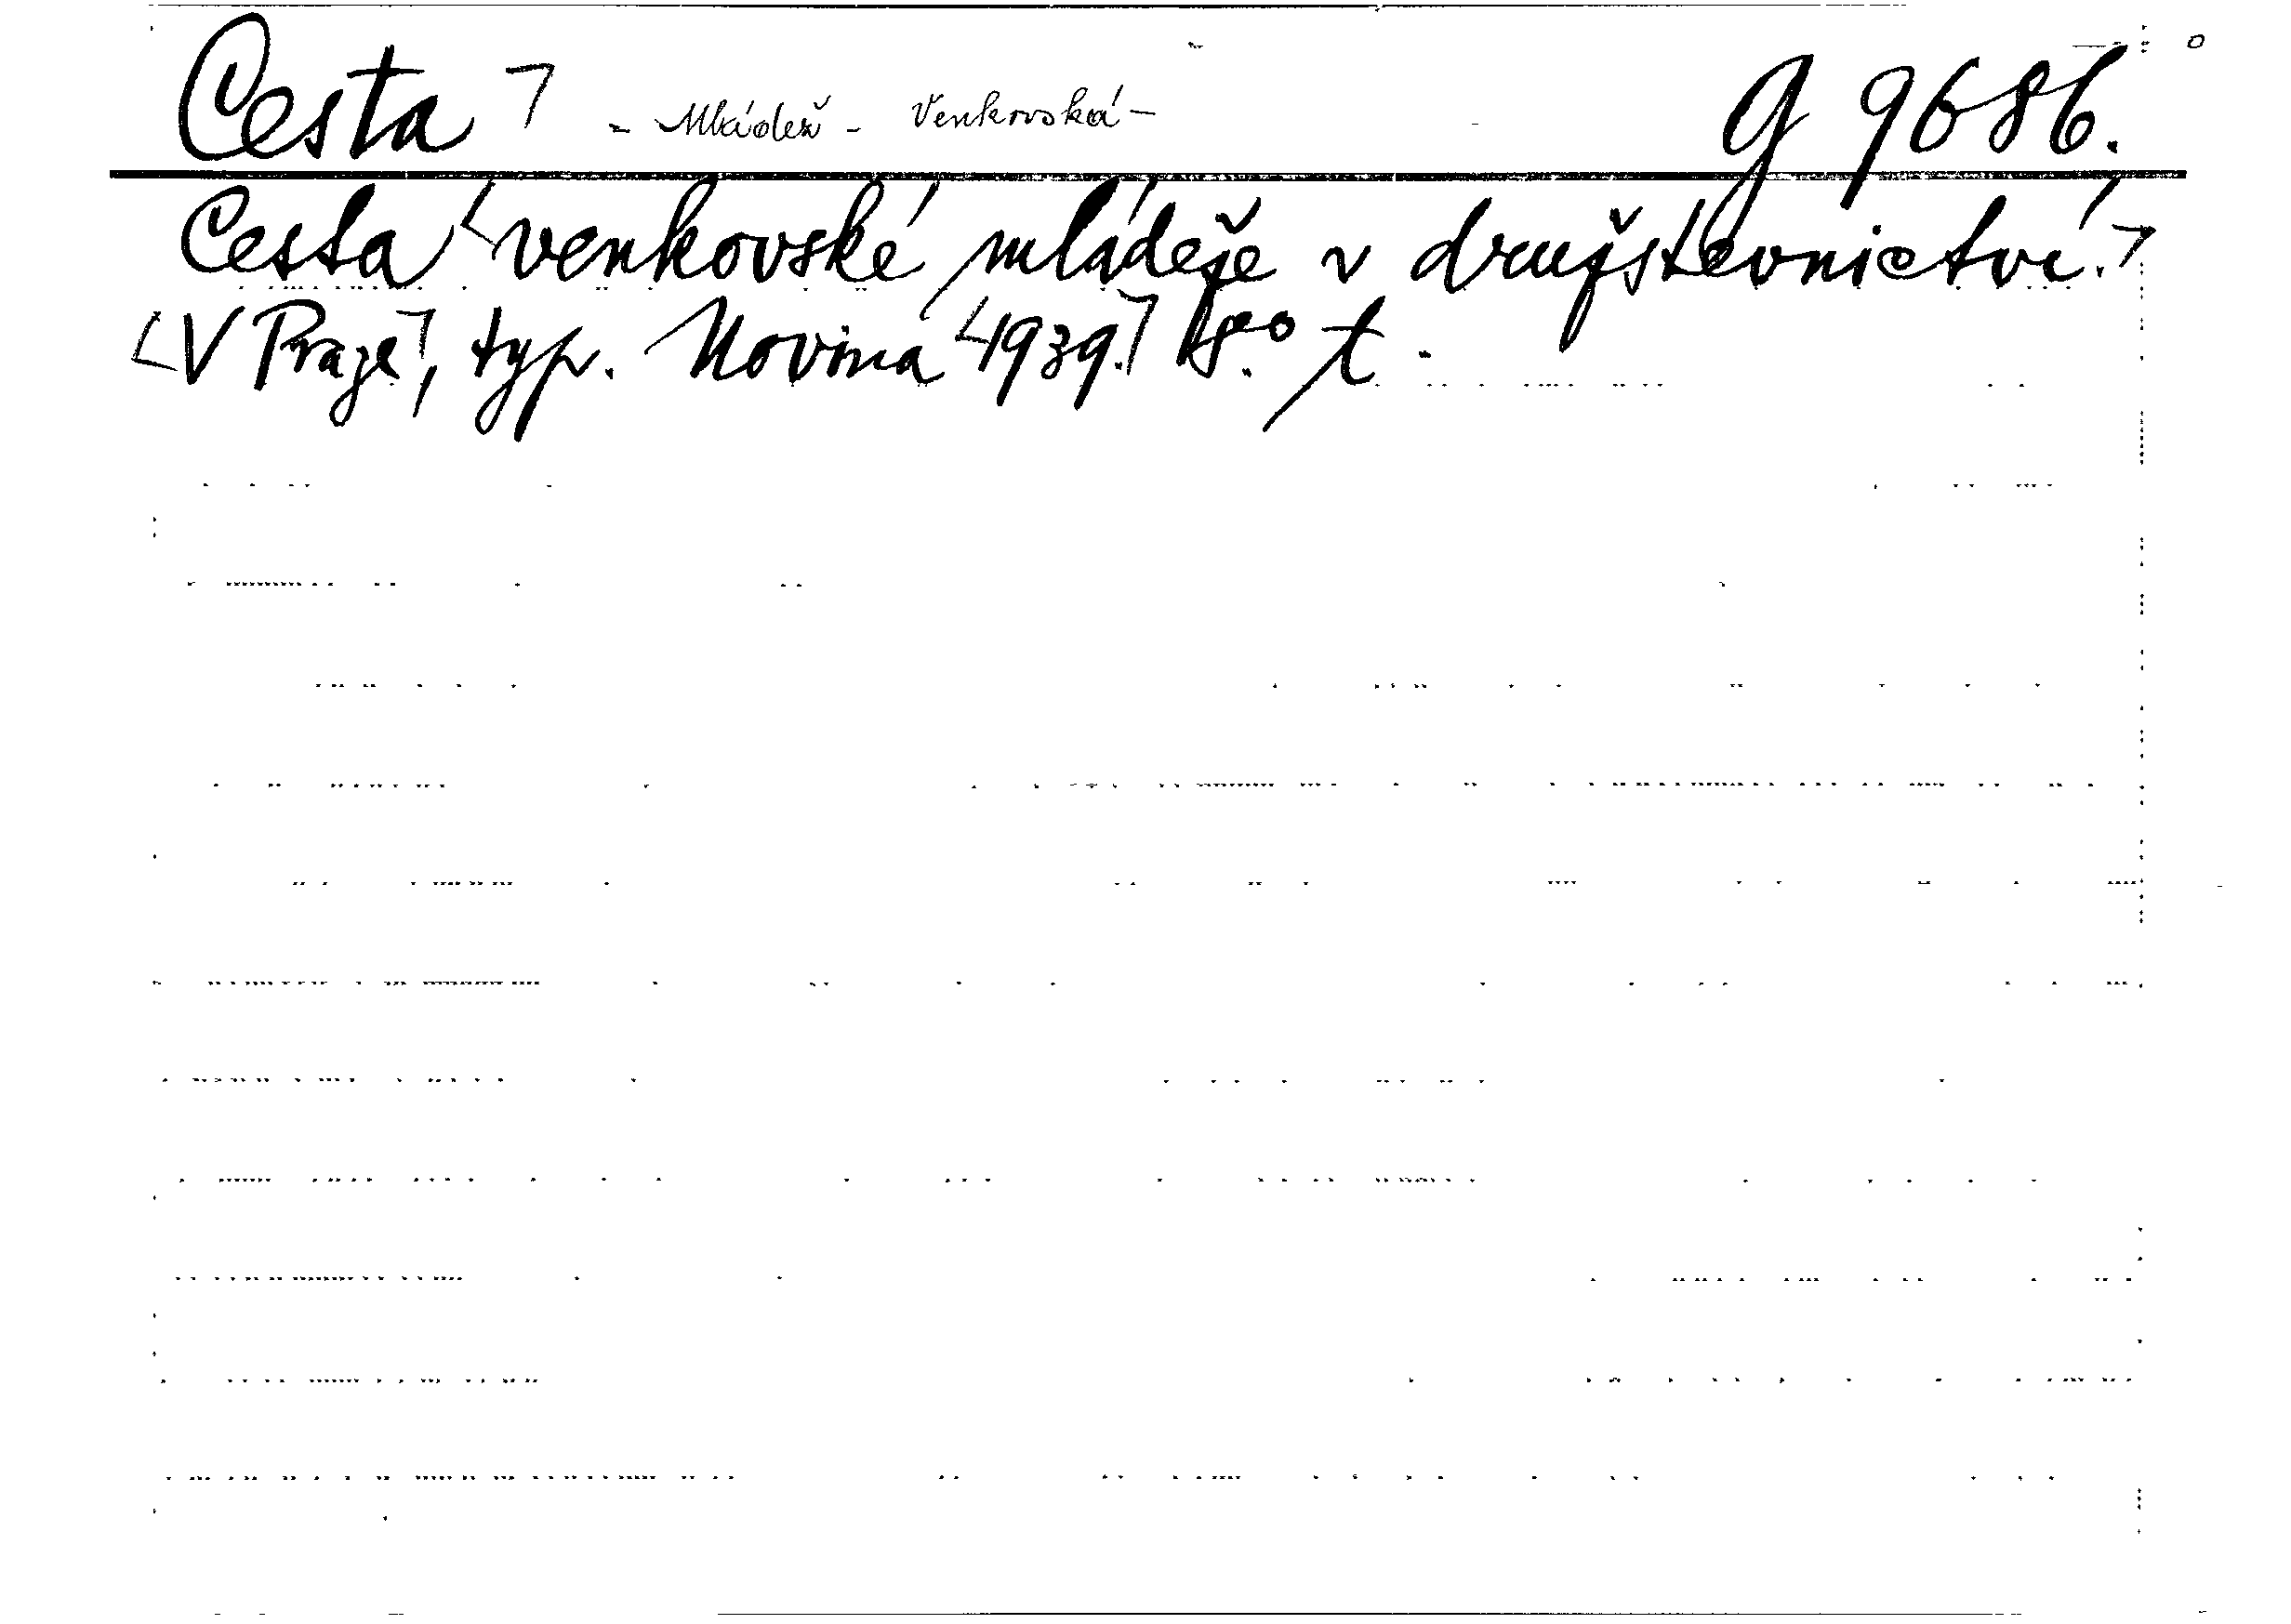 Cesta ⌝ - Mládež - Venkovská - g 9686.
Cesta ⌞venkovské mládeže v družstevnictví.⌝
⌞V Praze⌝, typ. Novina ⌞1939.⌝ 8.° t.